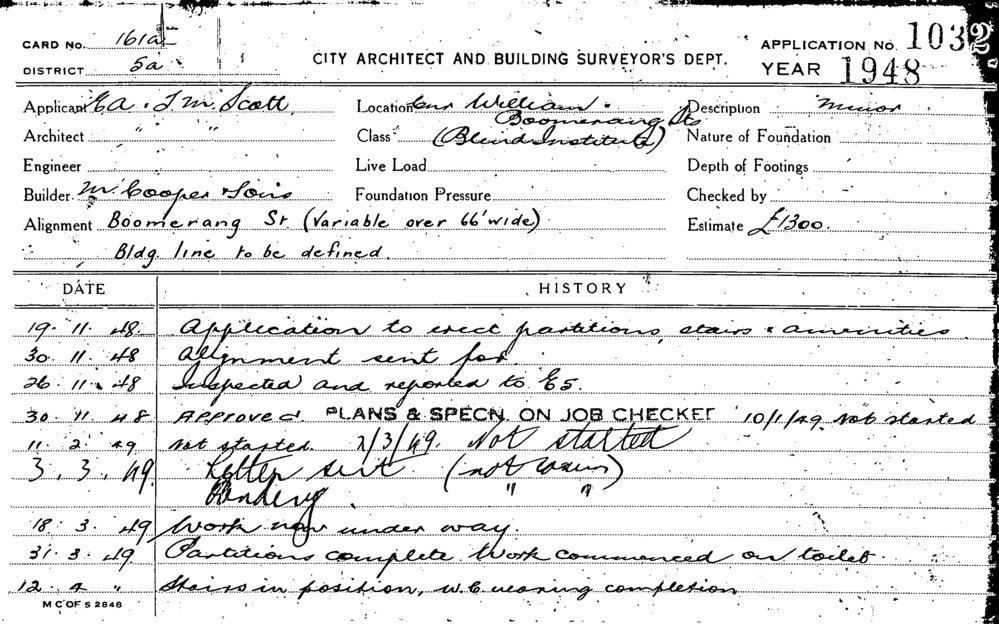 CARD No. 161a
DISTRICT 5a
CITY ARCHITECT AND BUILDING SURVEYOR'S DEPT.
APPLICATION No. 1032
YEAR 1948
Applicant E.A. & T.M. Scott
Location Cnr William &
Boomerang Sts
Description Minor
Architect " "
Class (Blind Institute)
Nature of Foundation
Engineer
Live Load
Depth of Footings
Builder M. Cooper & Sons
Foundation Pressure
Checked by
Alignment Boomerang St (Variable over 66' wide)
Estimate £1300.
Bldg. line to be defined.
DATE HISTORY
19. 11. 48. Application to erect partitions, stairs & amenities
30. 11. 48 Alignment sent for
26. 11. 48 Inspected and reported to E5.
30. 11. 48 Approved. PLANS & SPECN. ON JOB CHECKED 10/1/49 Not started
11. 2. 49 Not started. 2/3/49. Not started
3. 3. 49 Letter sent (not
" "
18. 3. 49 Work now under way.
31. 3. 49. Partitions complete Work commenced on toilet
12. 4 " Stairs in position, W.C nearing completion
M C OF S 2848